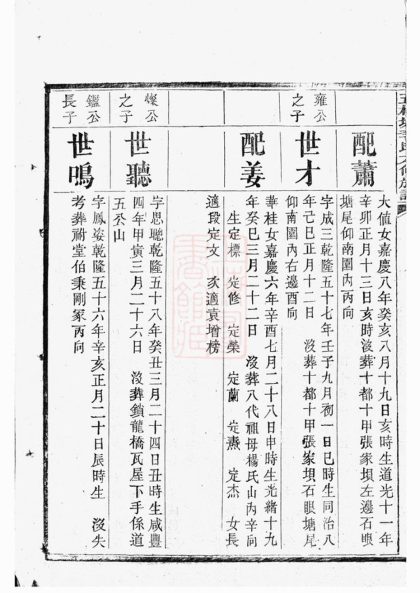 配蕭
大値女嘉慶八年癸亥八月十九日亥時生道光十一年
辛卯正月十三日亥時没葬十都十甲張家垻左邊石㬌
塘尾仰南園内丙向
雍公
之子
世才
字成三乾隆五十七年壬子九月初一日巳時生同治八
年己巳正月十二日没葬十都十甲張家垻石眼塘尾
仰南園内右邊酉向
配姜
華桂女嘉慶六年辛酉七月二十八日申時生光緒十九
年癸巳三月二十二日没葬八代祖母楊氏山内辛向
生定標 定修 定榮 定蘭 定燾 定杰 女長
適段定文 次適袁增榜
燦公
之子
世聽
字思聽乾隆五十八年癸丑三月二十四日丑時生咸豐
四年甲寅三月二十六日没葬鎖龍橋瓦屋下手係道
五公山
鑑公
長子
世鳴
字鳳姿乾隆五十六年辛亥正月二十日辰時生 没失
考葬祠堂伯秉剛冢丙向